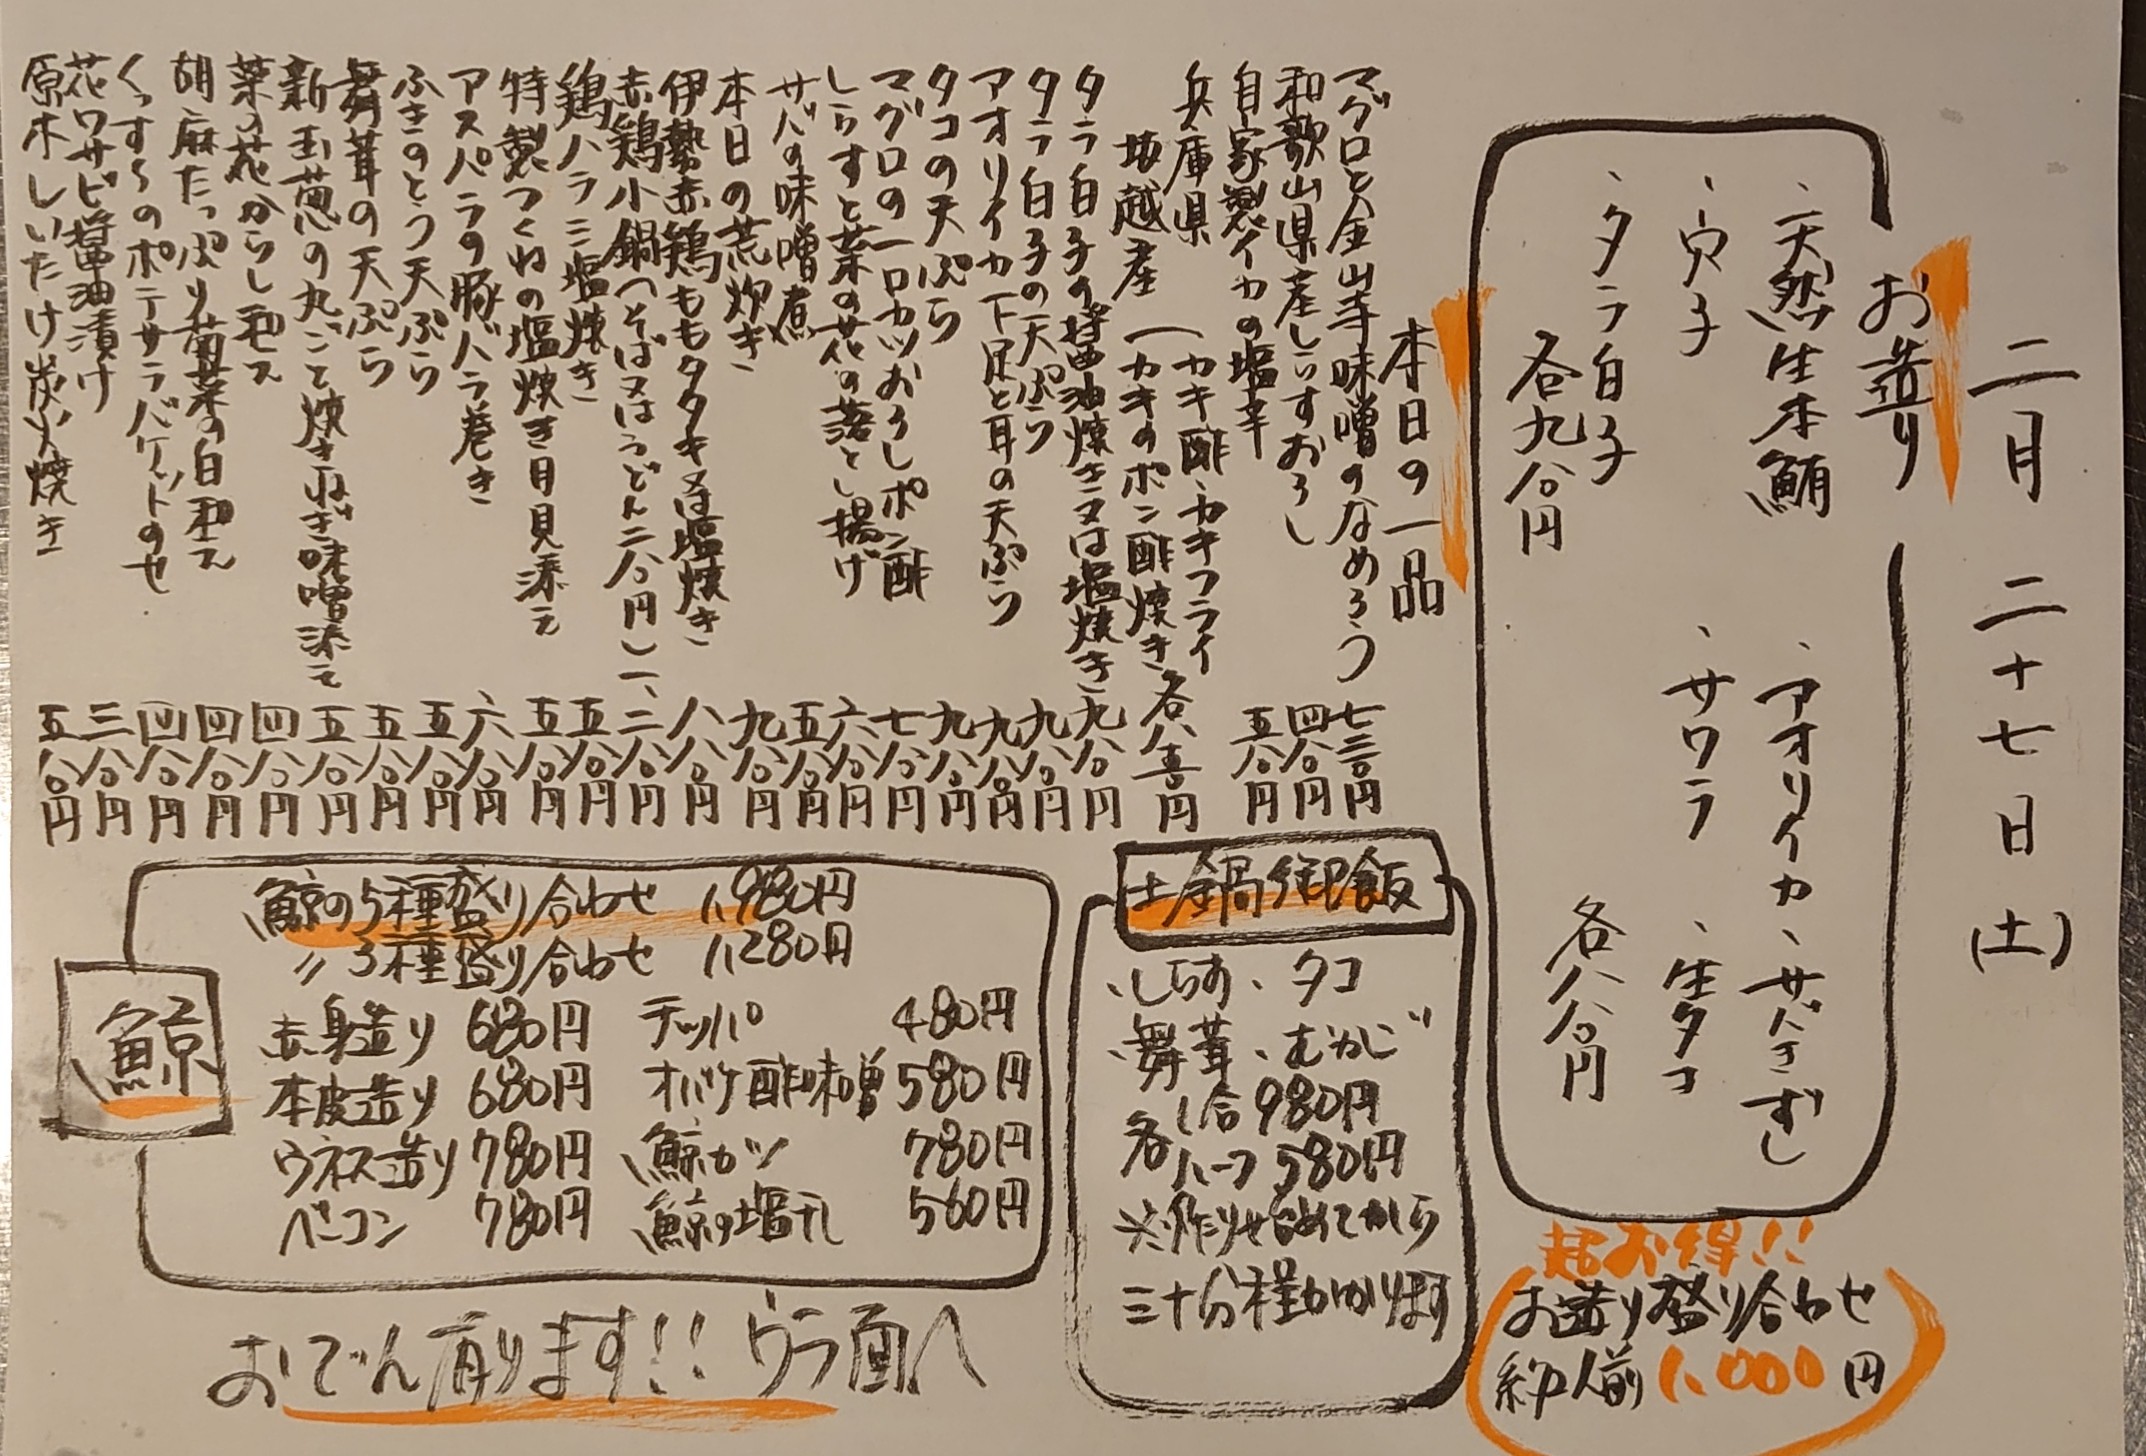 二月二十七日(土)
お造り
、天然生本鮪
、穴子
、タラ白子
各九八〇円
、アオリイカ、サバきずし
、サワラ、生タコ
各八八〇円
超お得!!
お造り盛り合わせ
約一人前1,000円
本日の一品
マグロと金山寺味噌のなめろう 七三〇円
和歌山県産しらすおろし 四八〇円
自家製イカの塩辛 五八〇円
兵庫県坂越産(カキ酢、カキフライ
(カキのポン酢焼き 各八三〇円
タラ白子の醤油焼き又は塩焼き 九八〇円
タラ白子の天ぷら 九八〇円
アオリイカ下足と耳の天ぷら 九八〇円
タコの天ぷら 九八〇円
マグロの一口カツおろしポン酢 七八〇円
しらすと菜の花の落とし揚げ 六八〇円
サバの味噌煮 五八〇円
本日の荒炊き 九八〇円
伊勢赤鶏ももタタキ又は塩焼き 八八〇円
赤鶏小鍋(そば又はうどん二八〇円) 一、二八〇円
鶏ハラミ塩焼き 五八〇円
特製つくねの塩焼き月見添え 五八〇円
アスパラの豚バラ巻き 六八〇円
ふきのとう天ぷら 五八〇円
舞茸の天ぷら 五八〇円
新玉葱の丸ごと焼きねぎ味噌添え 五八〇円
菜の花からし和え 四八〇円
胡麻たっぷり菊菜の白和え 四八〇円
くっすくのポテサラバケットのせ 四八〇円
花ワサビ醤油漬け 三八〇円
原木しいたけ炭火焼き 五八〇円
土鍋御飯
、しらす、タコ
、舞茸、むかご
各 1合980円
ハーフ580円
※作りはじめてから
三十分程かかります
鯨
鯨の5種盛り合わせ 1,980円
〃3種盛り合わせ 1,280円
赤身造り 680円 テッパ 480円
本皮造り 680円 オバケ酢味噌 580円
ウネス造り 780円 鯨カツ 780円
ベーコン 780円 鯨の塩干し 560円
おでん有ります!!ウラ面へ